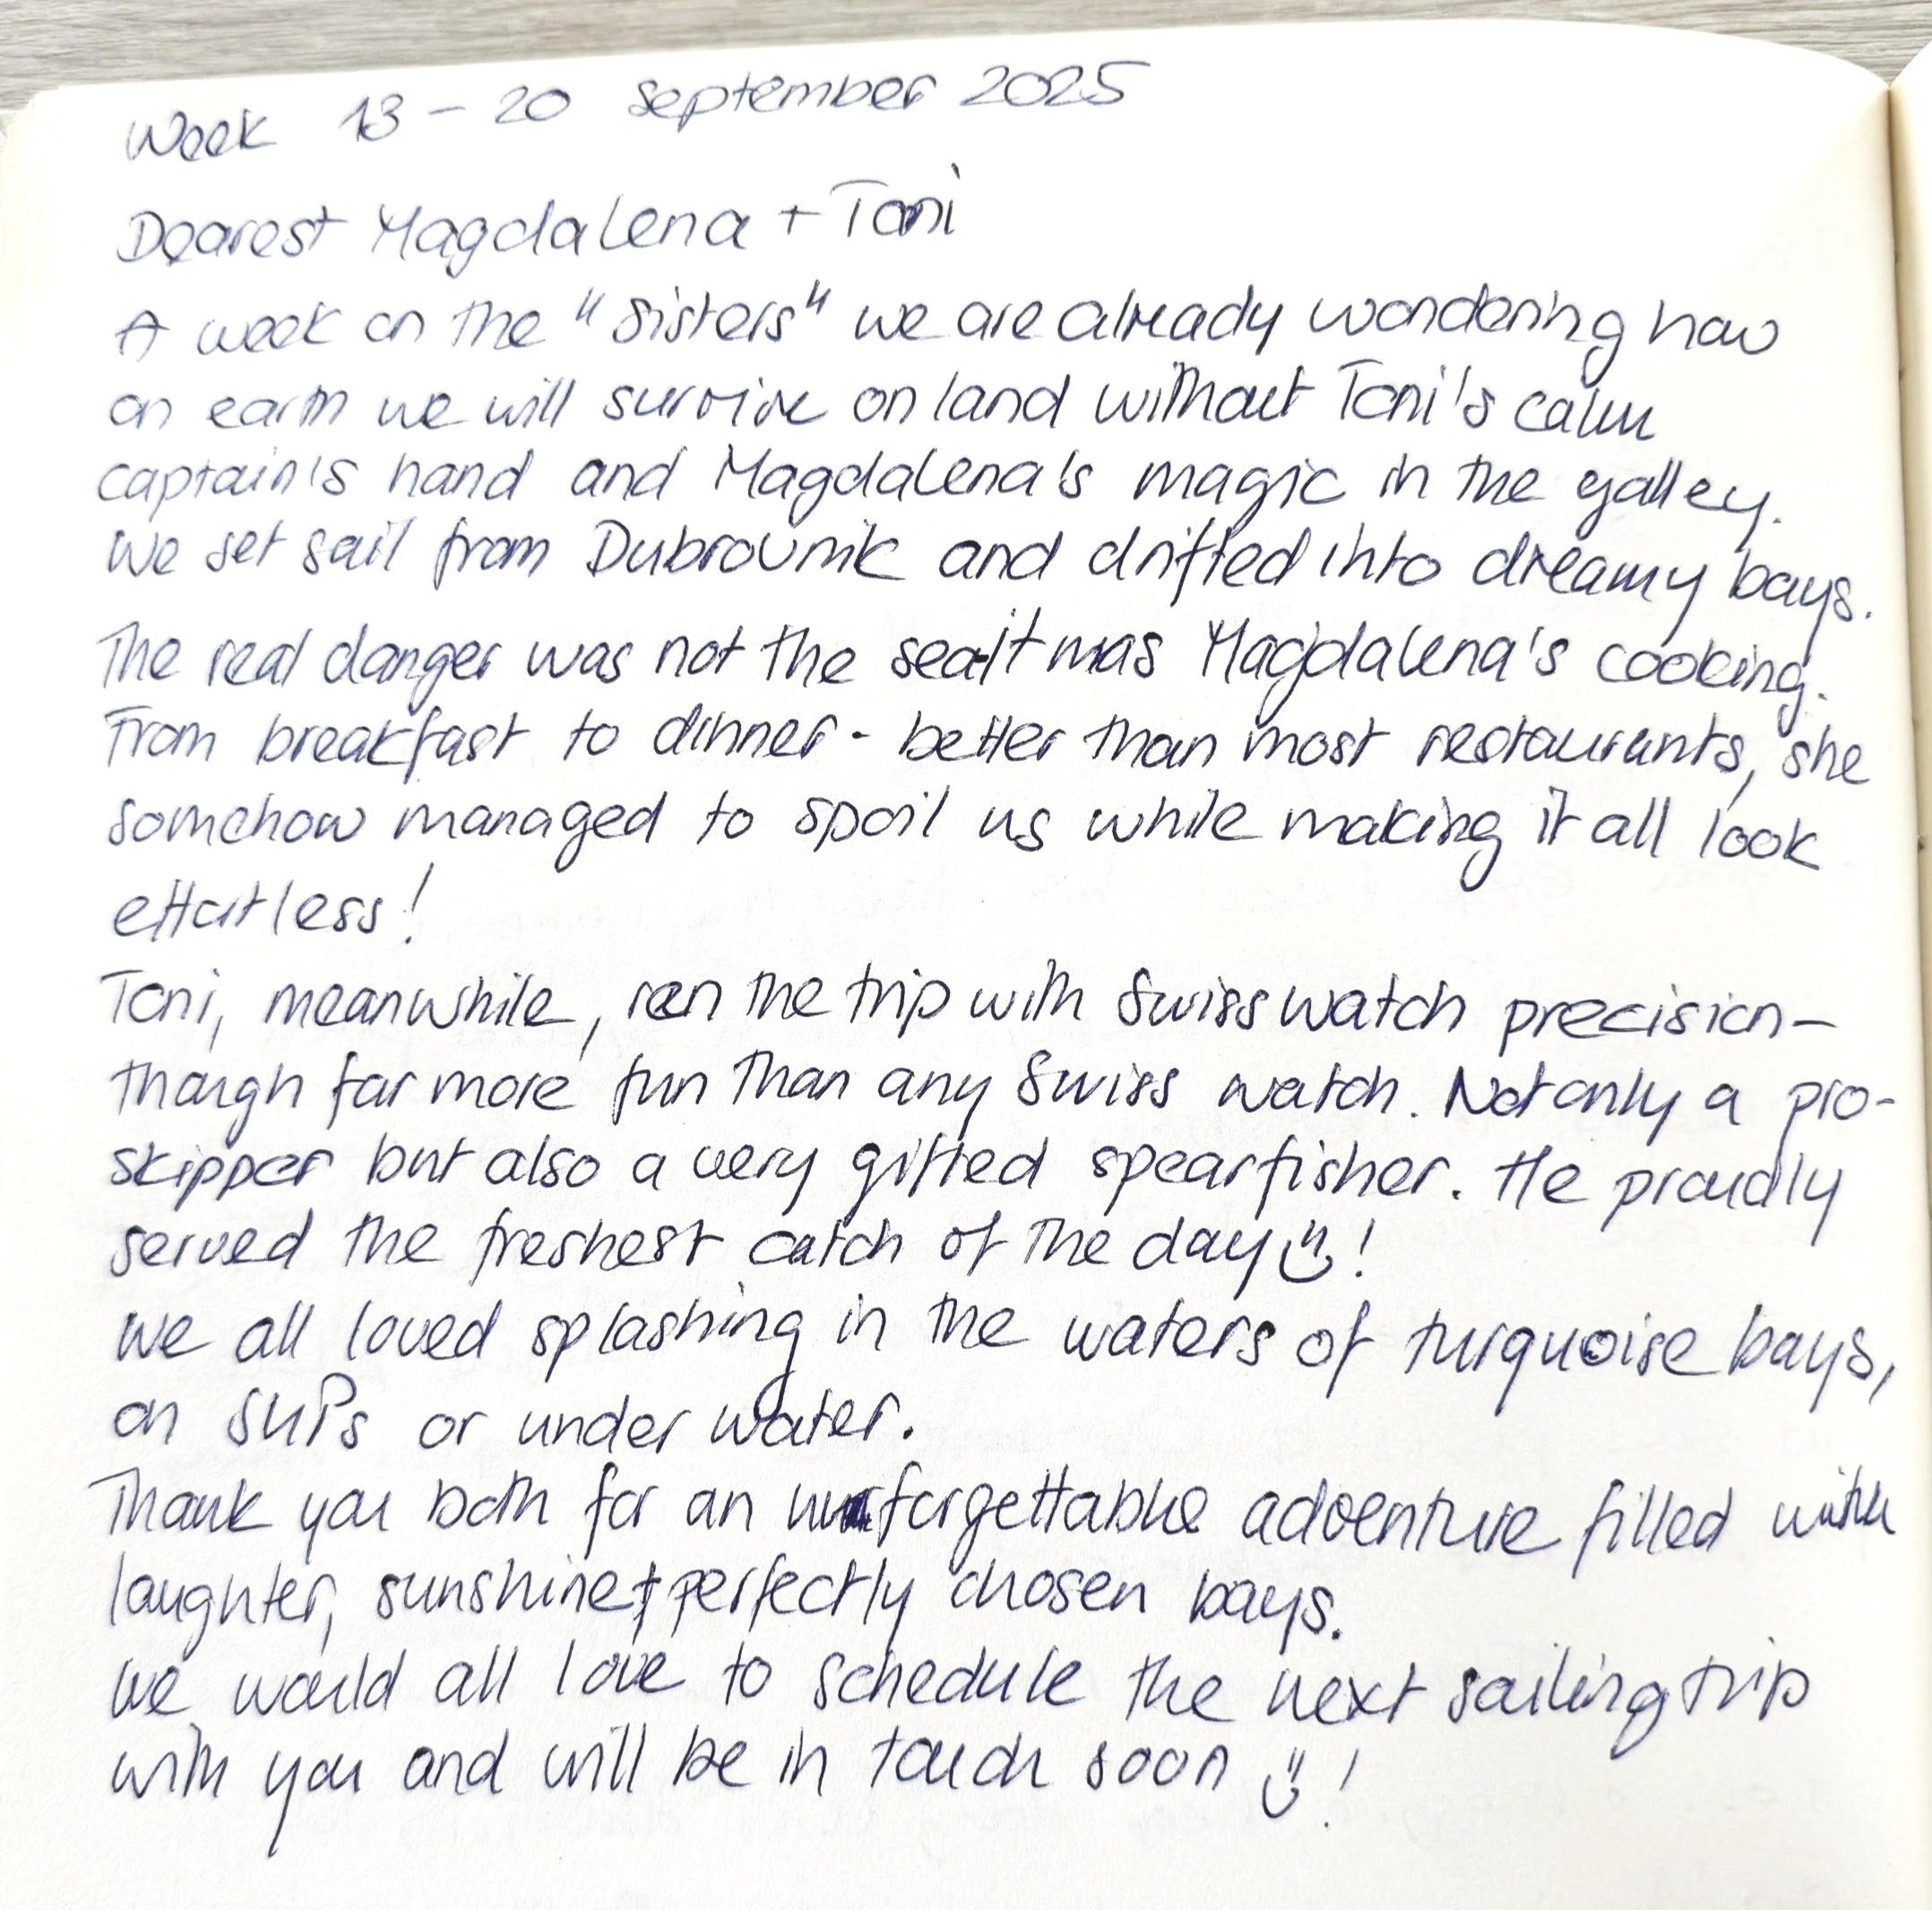 Week 13 – 20 September 2025
Dearest Magdalena + Toni
A week on the "Sisters" we are already wondering how
on earth we will survive on land without Toni's calm
captain's hand and Magdalena's magic in the galley.
We set sail from Dubrovnik and drifted into dreamy bays.
The real danger was not the sea-it was Magdalena's cooking.
From breakfast to dinner - better than most restaurants, she
somehow managed to spoil us while making it all look
effortless!
Toni, meanwhile, ran the trip with Swiss watch precision –
though far more fun than any Swiss watch. Not only a pro-
skipper but also a very gifted spearfisher. He proudly
served the freshest catch of the day ☺!
We all loved splashing in the waters of turquoise bays,
on SUPs or under water.
Thank you both for an unforgettable adventure filled with
laughter, sunshine + perfectly chosen bays.
We would all love to schedule the next sailing trip
with you and will be in touch soon ☺!